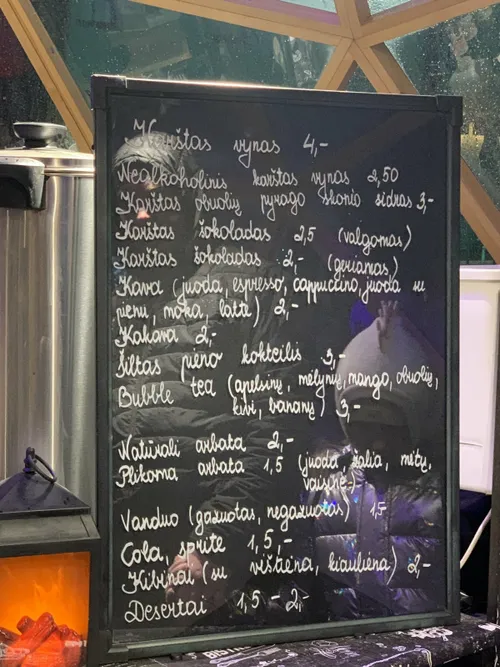 Karštas vynas 4,-
Nealkoholinis karštas vynas 2,50
Karštas obuolių pyrago skonio sidras 3,-
Karštas šokoladas 2,5 (valgomas)
Karštas šokoladas 2,- (geriamas)
Kava (juoda, espresso, cappuccino, juoda su
pienu, moka, latte) 2,-
Kakava 2,-
Šiltas pieno kokteilis 3,-
Bubble tea (apelsinų, mėlynių, mango, obuolių,
kivi, bananų) 3,-
Natūrali arbata 2,-
Plikoma arbata 1,5 (juoda, žalia, mėtų,
vaisinė)
Vanduo (gazuotas, negazuotas) 1,5
Cola, sprite 1,5,-
Kibinai (su vištiena, kiauliena) 2,-
Desertai 1,5 - 2,-